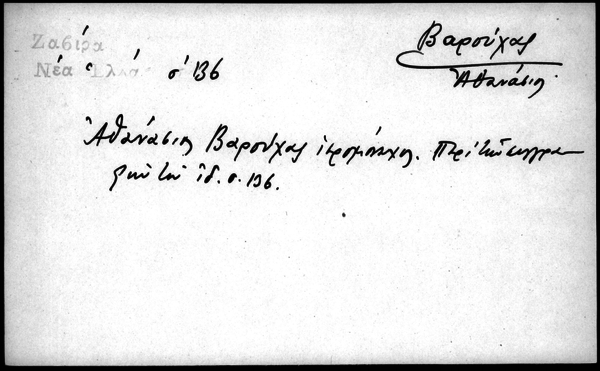 Ζαβίρα
Νέα Ἑλλὰς σ. 136
Βαρούχας
Ἀθανάσιος
Ἀθανάσιος Βαρούχας ἱερομόναχος. Περὶ τῶν συγγρα-
φῶν του ἰδ. σ. 136.